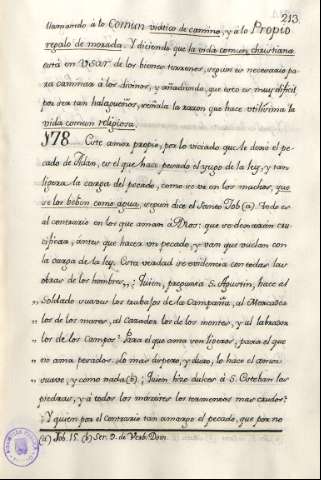 213.
llamando á lo Comun viatico de camino, y á lo Propio
regalo de morada. Y diciendo que la vida comun christiana
está en usar de los bienes terrenos, segun es necesario pa-
ra caminar á los divinos, y añadiendo, que esto es muy dificil
por ser tan halagueños, señala la razon que hace utilisima la
vida comun religiosa.
178 Este amor propio, por lo viciado que le dexó el pe-
cado de Adan, es el que hace pesado el yugo de la ley, y tan
ligera la carga del pecado, como se vé en los malos, que
se los beben como agua, segun dice el Santo Job (a). Todo es
al contrario en los que aman á Dios: que se dexarán cru-
cificar, antes que hacer un pecado, y van que vuelan con
la carga de la ley. Esta verdad se evidencia con todas las
obras de los hombres, ¿Quien, pregunta S. Agustin, hace al
„ Soldado suaves los trabajos de la Campaña, al Mercader
„ los de los mares, al cazador los de los montes, y al labrador
„ los de los Campos? Para el que ama son ligeros, para el que
„ no ama pesados. Lo mas áspero, y duro, lo hace el amor
„ suave, y como nada (b). ¿Quien hizo dulces á S. Esteban las
piedras, y á todos los martires los tormentos mas crudos?
¿Y quien por el contrario tan amargo el pecado, que por no
(a) Job. 15. (b) Ser. 9. de Verb. Dom.